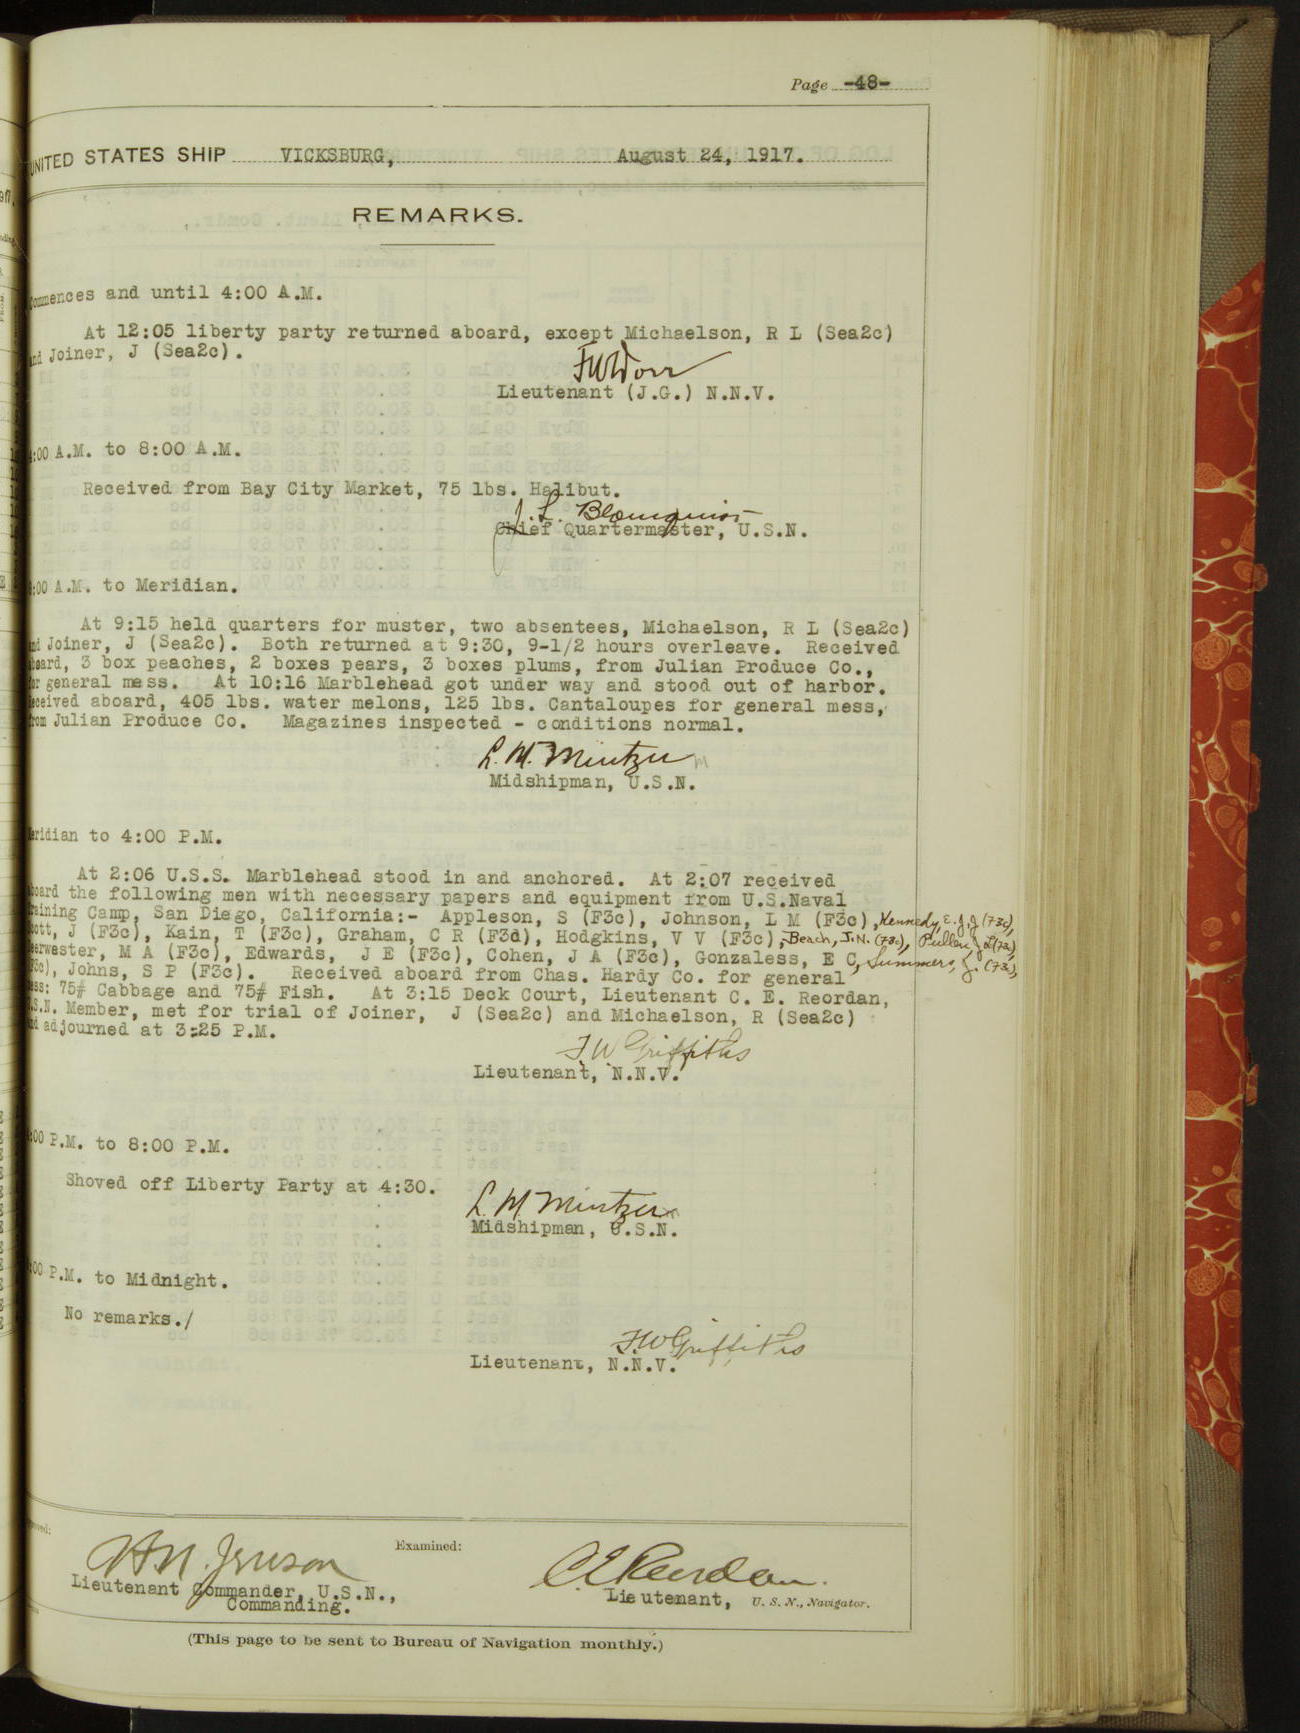 Page -48-
UNITED STATES SHIP VICKSBURG, August 24, 1917.
REMARKS.
Commences and until 4:00 A.M.
At 12:05 liberty party returned aboard, except Michaelson, R L (Sea2c)
and Joiner, J (Sea2c).
Lieutenant (J.G.) N.N.V.
4:00 A.M. to 8:00 A.M.
Received from Bay City Market, 75 lbs. Halibut.
J. L. Blomquist
Chief Quartermaster, U.S.N.
8:00 A.M. to Meridian.
At 9:15 held quarters for muster, two absentees, Michaelson, R L (Sea2c)
and Joiner, J (Sea2c). Both returned at 9:30, 9-1/2 hours overleave. Received
aboard, 3 box peaches, 2 boxes pears, 3 boxes plums, from Julian Produce Co.,
for general mess. At 10:16 Marblehead got under way and stood out of harbor.
Received aboard, 405 lbs. water melons, 125 lbs. Cantaloupes for general mess,
from Julian Produce Co. Magazines inspected - conditions normal.
L. M. Mintzer
Midshipman, U.S.N.
Meridian to 4:00 P.M.
At 2:06 U.S.S. Marblehead stood in and anchored. At 2:07 received
aboard the following men with necessary papers and equipment from U.S.Naval
Training Camp, San Diego, California:- Appleson, S (F3c), Johnson, L M (F3c), Kennedy, E. J. J (F3c),
Scott, J (F3c), Kain, T (F3c), Graham, C R (F3d), Hodgkins, V V (F3c), Beach, J.N. (F3c), Pullen, L (F3c),
M A (F3c), Edwards, J E (F3c), Cohen, J A (F3c), Gonzaless, E C, Summers, J. (F3c),
(F3c), Johns, S P (F3c). Received aboard from Chas. Hardy Co. for general
mess: 75# Cabbage and 75# Fish. At 3:15 Deck Court, Lieutenant C. E. Reordan,
U.S.N. Member, met for trial of Joiner, J (Sea2c) and Michaelson, R (Sea2c)
and adjourned at 3:25 P.M.
F W Griffiths
Lieutenant, N.N.V.
4:00 P.M. to 8:00 P.M.
Shoved off Liberty Party at 4:30.
L. M. Mintzer
Midshipman, U.S.N.
8:00 P.M. to Midnight.
No remarks./
F.W Griffiths
Lieutenant, N.N.V.
Approved:
Examined:
C E Reordan.
Lieutenant Commander, U.S.N.,
Commanding.
Lieutenant, U. S. N., Navigator.
(This page to be sent to Bureau of Navigation monthly.)